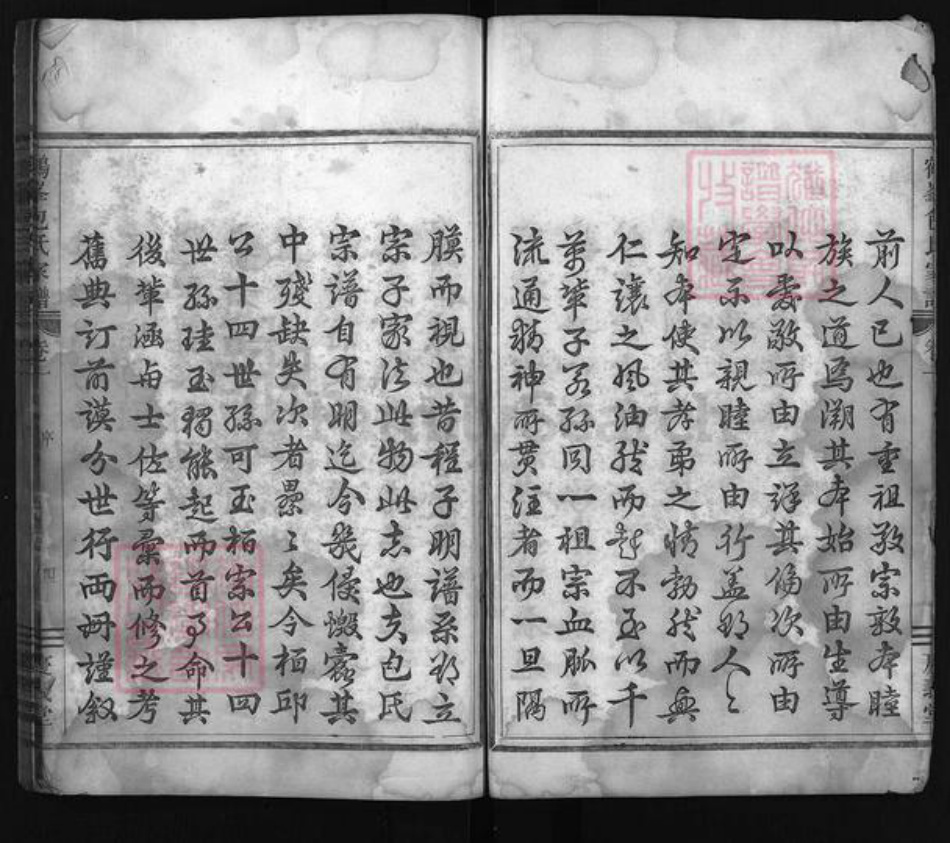 前人已也有重祖敬宗敦本睦
族之道焉溯其本始所由生導
以愛敬所由立詳其倫次所由
定示以親睦所由行盖那人〻
知本使其孝弟之情勃然而興
仁讓之風油然而起不至以千
萬輩子若孫同一祖宗血脈所
流通精神所貫注者而一旦隔
膜而視也昔程子明譜系那立
宗子家法此物此志也夫包氏
宗譜自有明迄今幾侵燬蠹其
中殘缺失次者纍〻矣今栢邱
公十四世孫可玉栢宗公十四
世孫珪玉獨能起而首事命其
後輩涵毋士佐等彙而修之考
舊典訂前謨分世行兩冊謹叙
鶴峯包氏家譜
卷一
序
四